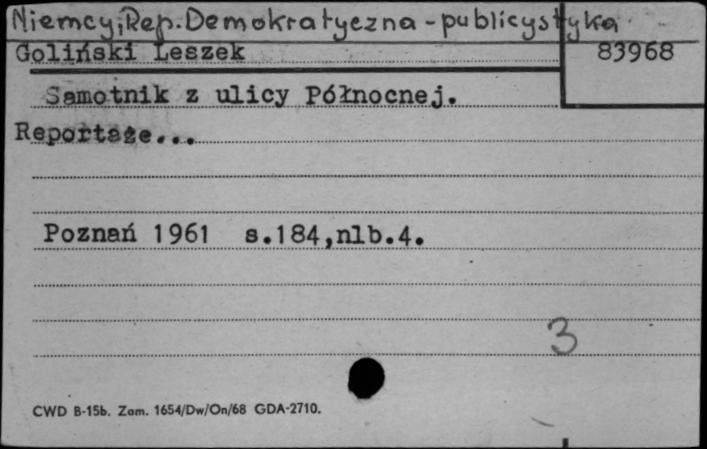 Niemcy, Rep. Demokratyczna - publicystyka
Goliński Leszek
83968
Samotnik z ulicy Północnej.
Reportaże...
Poznań 1961 s.184,nlb.4.
3
CWD B-15b. Zam. 1654/Dw/On/68 GDA-2710.